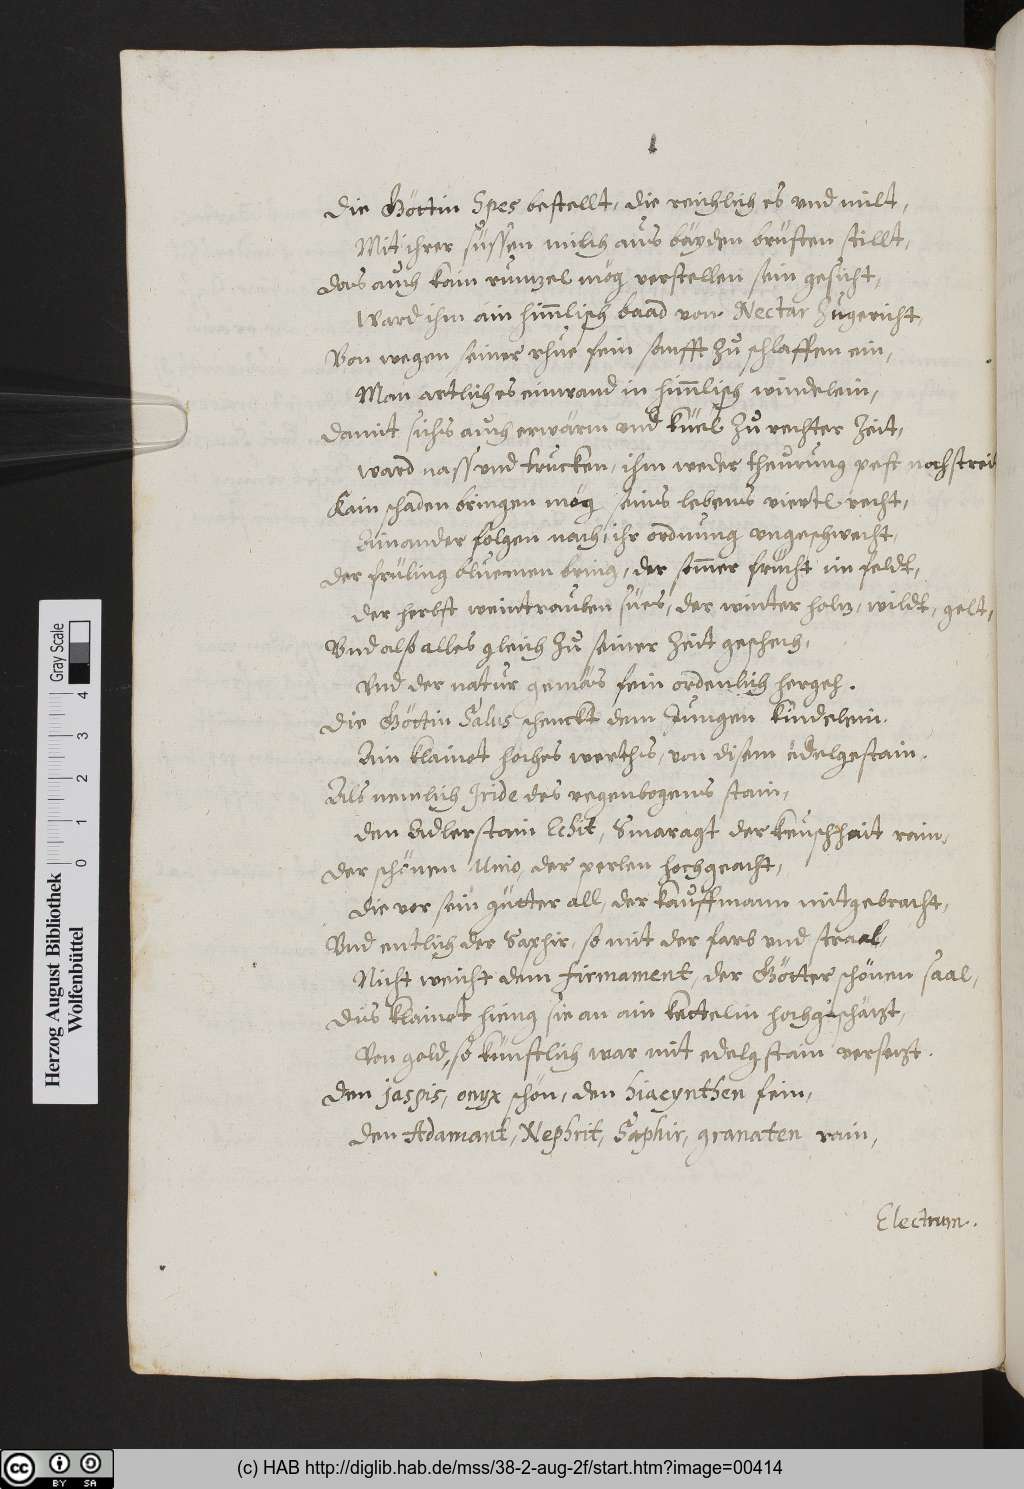 Die Göttin Spes bestellt, die reichlich es und milt,
Mit ihrer süssen milch aus bayden brüsten stillt,
das auch kain runtzel mög verstellen sein gesicht,
Ward ihm ain him̅lisch baad von Nectar zugericht,
Von wegen seiner rhue fein sanfft zu schlaffen ein,
Man artlich es einwand in him̅lisch windelein,
damit sichs auch erwärm und küel zu rechter Zeit,
ward nass und trucken, ihm weder theurung pest noch streit
Kain schaden bringen mög seins lebens viertl recht,
Ainander folgen nach, ihr ordnung ungeschwecht,
der früling bluemen bring, der som̅er frücht im feldt,
der herbst weintrauben sües, der winter holtz, wildt, gelt,
Und alß alles gleich zu seiner Zeit geschech,
Und der natur gemäs fein ordenlich hergeh.
Die Göttin Salus schenckt dem Jungen kindelein.
Ain klainot hoches werths, von disem edelgestain.
Als nemlich Iride des regenbogens stain,
den Adlerstain Echit, Smaragt der keuschhait rain,
der schönen Unio, der perlen hochgeacht,
die vor sein gütter all, der kauffmann mitgebracht,
Und entlich der Saphir, so mit der farb und straal,
Nicht weicht dem firmament, der Götter schönen saal,
Dis klainot hieng sie an ain kettelin hochgschätzt,
Von gold, so künstlich war mit edelgstain versetzt.
den jaspis, onyx schön, den hiacynthen fein,
den Adamant, Nephrit, Saphir, granaten rain,
Electrum.
Herzog August Bibliothek
Wolfenbüttel
0 1 2 3 4
Gray Scale
cc BY SA
(c) HAB http://diglib.hab.de/mss/38-2-aug-2f/start.htm?image=00414